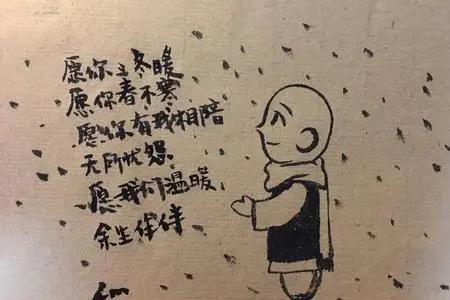 愿你冬暖
愿你春不寒
愿你有我相陪
无所忧怨
愿我们温暖
余生作伴